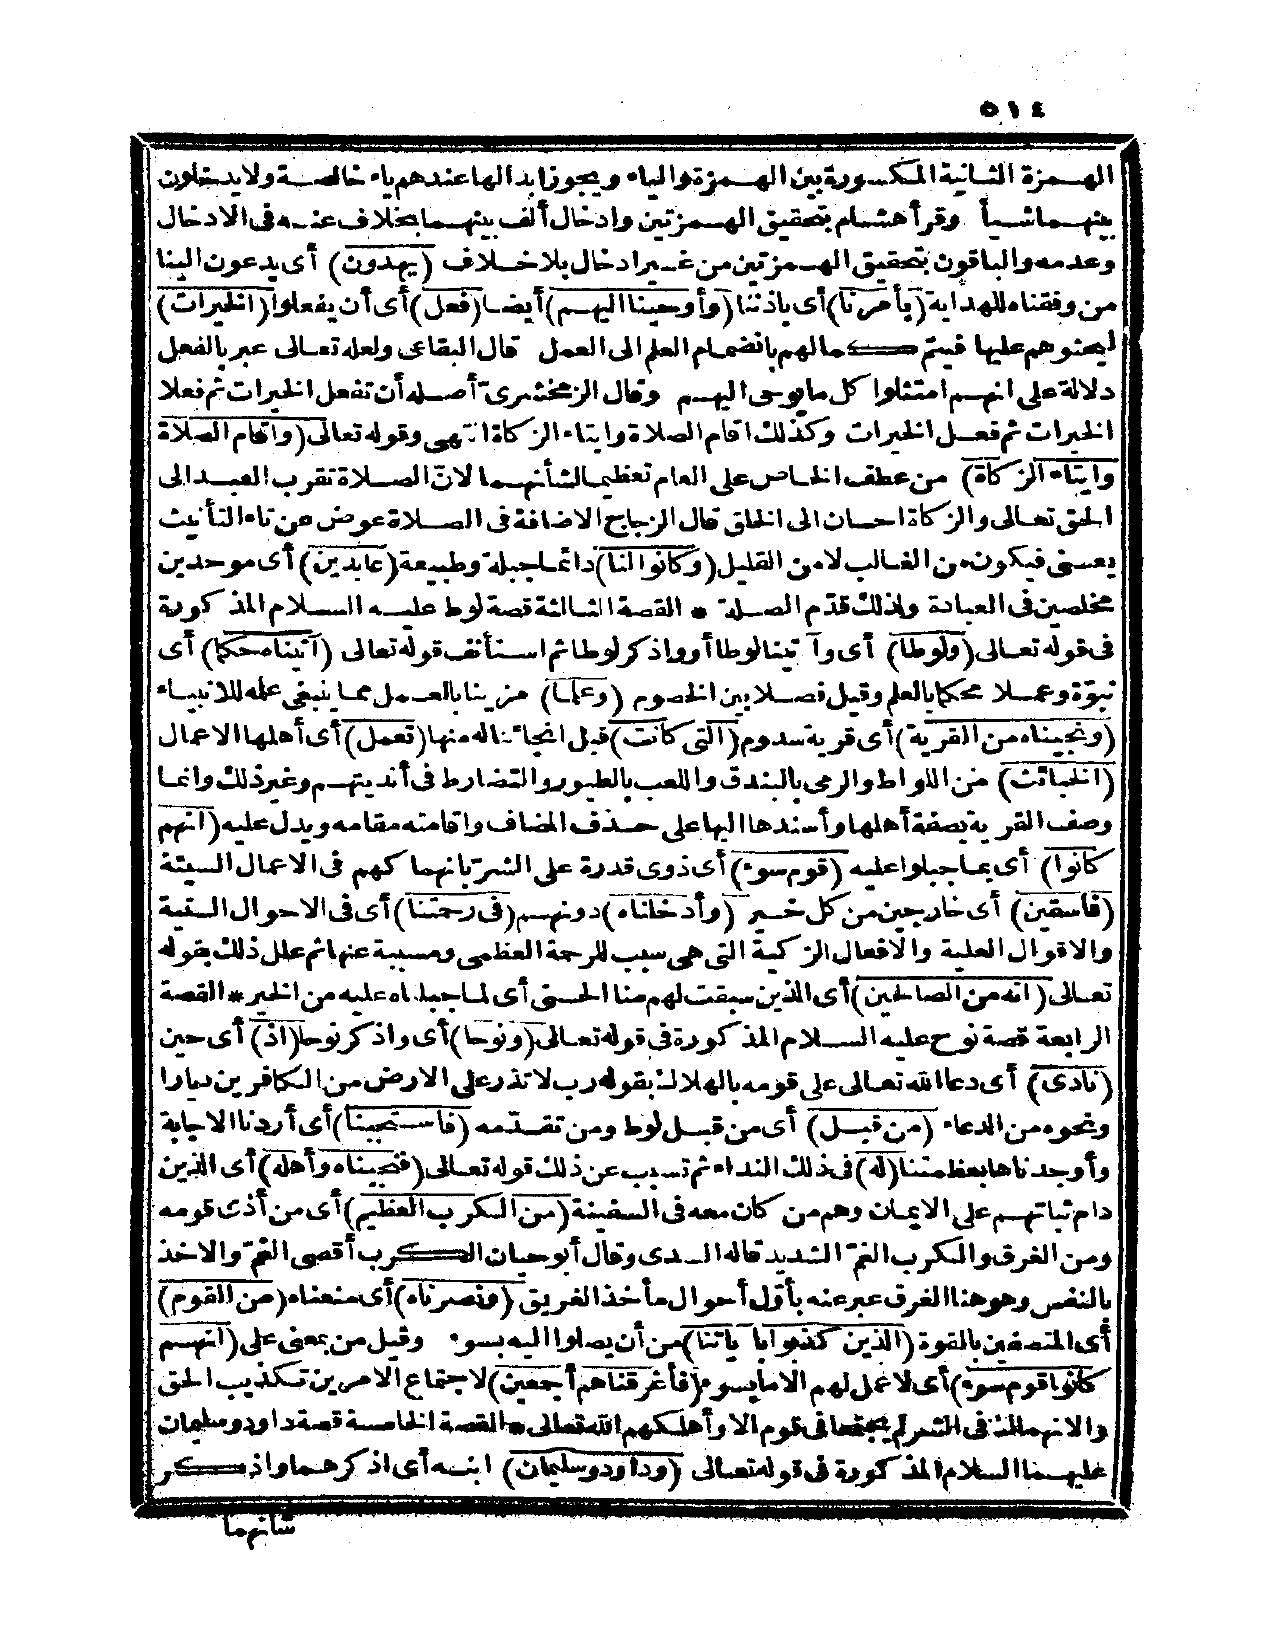 ٥١٤
الهمزة الثانية المكسورة بين الهمزة والياء ويجوز ابدالها عندهم ياء خالصة ولا يدخلون
بينهما شيأ وقرأ هشام بتحقيق الهمزتين وادخال ألف بينهما بخلاف عنه فى الادخال
وعدمه والباقون بتحقيق الهمزتين من غير ادخال بلا خلاف (يهدون) أى يدعون الينا
من وفقناه للهداية (بأمرنا) أى باذننا (وأوحينا اليهم) أيضا (فعل) أى أن يفعلوا (الخيرات)
ليحثوهم عليها فيتم كمالهم بانضمام العلم الى العمل قال البقاى ولعله تعالى عبر بالفعل
دلالة على انهم امتثلوا كل ما يوحى اليهم وقال الزمخشرى أصله أن تفعل الخيرات ثم فعلا
الخيرات ثم فعل الخيرات وكذلك اقام الصلاة وايتاء الزكاة انتهى وقوله تعالى (واقام الصلاة
وايتاء الزكاة) من عطف الخاص على العام تعظيما لشأنهما لان الصلاة تقرب العبد الى
الحق تعالى والزكاة احسان الى الخلق قال الزجاج الاضافة فى الصلاة عوض عن تاء التأنيث
يعنى فيكون من الغالب لا من القليل (وكانوا لنا) دائما جبلة وطبيعة (عابدين) أى موحدين
مخلصين فى العبادة ولذلك قدم الصلة * القصة الثالثة قصة لوط عليه السلام المذكورة
فى قوله تعالى (ولوطا) أى وآتينا لوطا أو واذكر لوطا ثم استأنف قوله تعالى (آتيناه حكما) أى
نبوّة وعملا محكما بالعلم وقيل فصلا بين الخصوم (وعلما) مزينا بالعمل مما ينبغى علمه للانبياء
(ونجيناه من القرية) أى قرية سدوم (التى كانت) قبل انجائنا له منها (تعمل) أى أهلها الاعمال
(الخبائث) من اللواط والرمى بالبندق واللعب بالطيور والتضارط فى أنديتهم وغير ذلك وانما
وصف القرية بصفة أهلها وأسندها اليها على حذف المضاف واقامته مقامه ويدل عليه (انهم
كانوا) أى بما جبلوا عليه (قوم سوء) أى ذوى قدرة على الشر بانهماكهم فى الاعمال السيئة
(فاسقين) أى خارجين من كل خير (وأدخلناه) دونهم (فى رحمتنا) أى فى الاحوال السنية
والاقوال العلية والافعال الزكية التى هى سبب للرحمة العظمى ومسببة عنها ثم علل ذلك بقوله
تعالى (انه من الصالحين) أى الذين سبقت لهم منا الحسنى أى لما جبلناه عليه من الخير * القصة
الرابعة قصة نوح عليه السلام المذكورة فى قوله تعالى (ونوحا) أى واذكر نوحا (اذ) أى حين
(نادى) أى دعا الله تعالى على قومه بالهلاك بقوله رب لا تذر على الارض من الكافرين ديارا
ونحوه من الدعاء (من قبل) أى من قبل لوط ومن تقدمه (فاستجبنا) أى أردنا الاجابة
وأوجدناها بعظمتنا (له) فى ذلك النداء ثم تسبب عن ذلك قوله تعالى (فنجيناه وأهله) أى الذين
دام ثباتهم على الايمان وهم من كان معه فى السفينة (من الكرب العظيم) أى من أذى قومه
ومن الغرق والكرب الغمّ الشديد قاله السدى وقال أبو حيان الكرب أقصى الغمّ والاخذ
بالنفس وهو هنا الغرق عبر عنه بأوّل أحوال مأخذ الغريق (ونصرناه) أى منعناه (من القوم)
أى المتصفين بالقوة (الذين كذبوا بآياتنا) من أن يصلوا اليه بسوء وقيل من بمعنى على (انهم
كانوا قوم سوء) أى لا عمل لهم الا ما يسوء (فأغرقناهم أجمعين) لاجتماع الامرين تكذيب الحق
والانهماك فى الشر لم يجتمعا فى قوم الا وأهلكهم الله تعالى * القصة الخامسة قصة داود وسليمان
عليهما السلام المذكورة فى قوله تعالى (وداود وسليمان) ابنه أى اذكرهما واذكر
شانهما